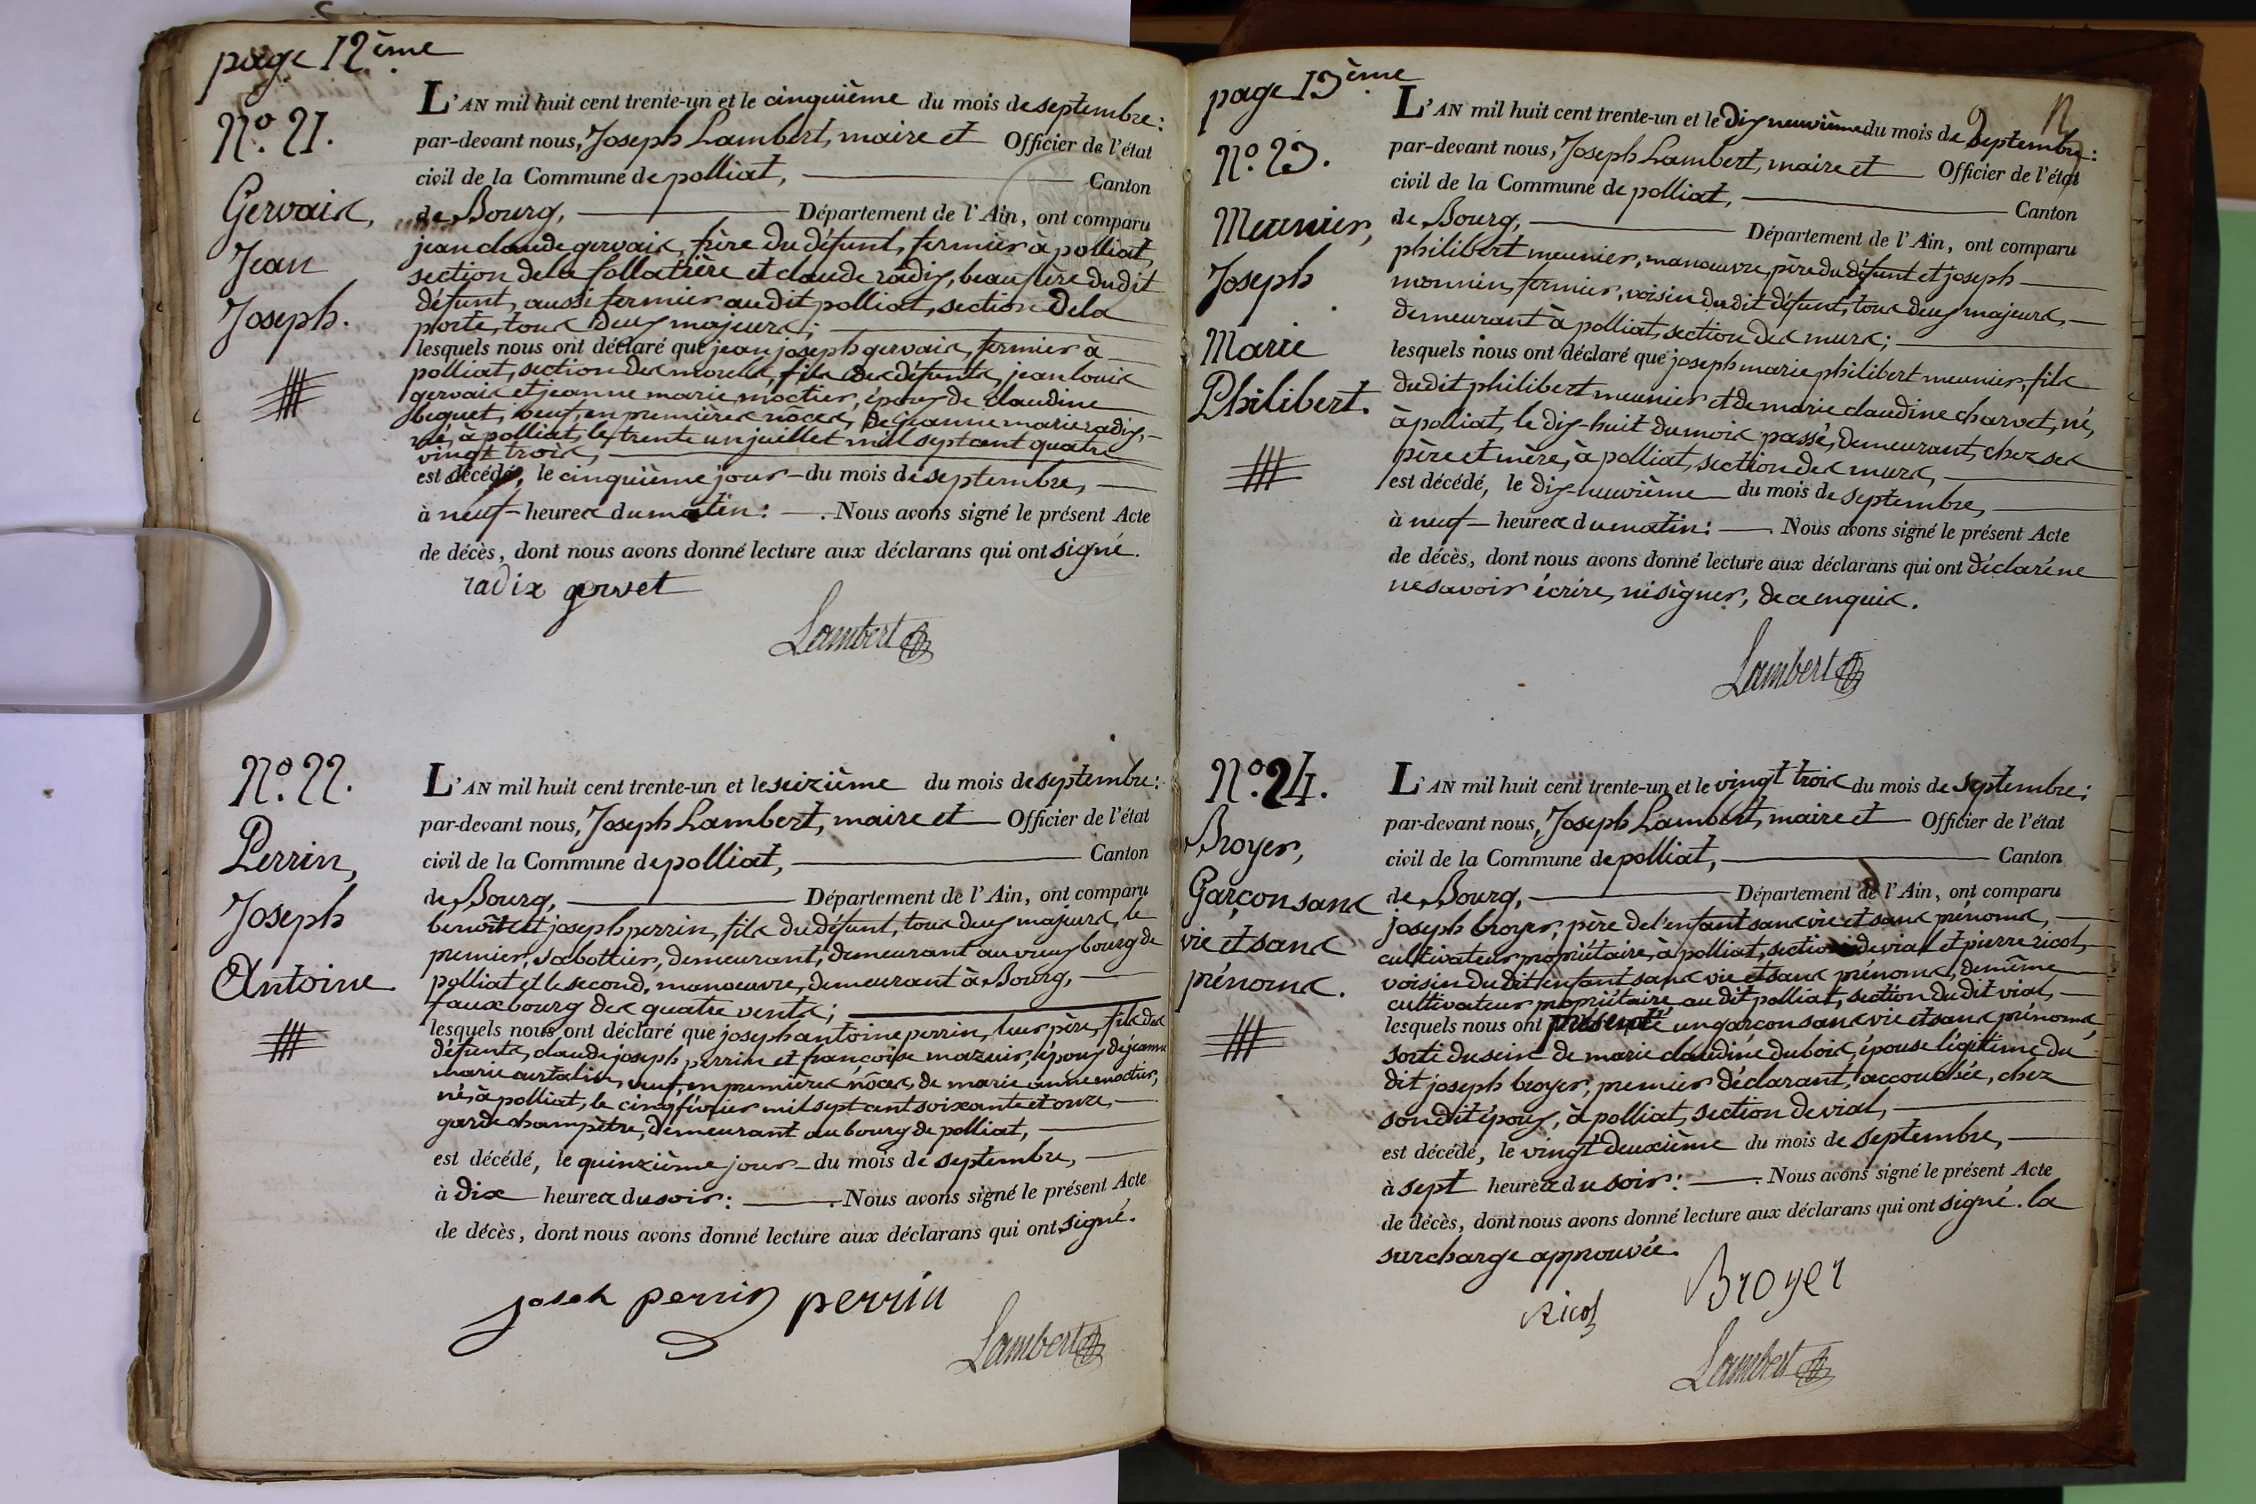 page 12.ème
N.º 21.
Gervais,
Jean
Joseph.
L'AN mil huit cent trente-un et le cinquième du mois de septembre:
par-devant nous, Joseph Lambert, maire et Officier de l'état
civil de la Commune de polliat, Canton
de Bourg, Département de l'Ain, ont comparu
jean claude gervais, frère du défunt, fermier à polliat,
section de la follatière et claude radix, beaufrère dudit
défunt, aussi fermier audit polliat, section de la
porte, tous deux majeurs;
lesquels nous ont déclaré que jean joseph gervais, fermier à
polliat, section des morells, fils des défunts, jean louis
gervais et jeanne marie moctier, époux de claudine
beguet, veuf, en premières nôces, de jeanne marie radix,
né, à polliat, le trente un juillet mil sept cent quatre
vingt trois,
est décédé, le cinquième jour du mois de septembre,
à neuf heures du matin: Nous avons signé le présent Acte
de décès, dont nous avons donné lecture aux déclarans qui ont signé.
radix gervet
Lambert
N.º 22.
Perrin,
Joseph
Antoine
L'AN mil huit cent trente-un et le seizième du mois de septembre:
par-devant nous, Joseph Lambert, maire et Officier de l'état
civil de la Commune de polliat, Canton
de Bourg, Département de l'Ain, ont comparu
benoît et joseph perrin, fils du défunt, tous deux majeurs, le
premier, sabottier, demeurant, demeurant au vieux bourg de
polliat et le second, manoeuvre, demeurant à Bourg,
fauxbourg des quatre vents;
lesquels nous ont déclaré que joseph antoine perrin, leur père, fils des
défunts, claude joseph perrin et françoise mazuir, époux de jeanne
marie curtalin, veuf, en premières nôces, de marie anne moctier,
né, à polliat, le cinq février mil sept cent soixante et onze,
garde champêtre, demeurant au bourg de polliat,
est décédé, le quinzième jour du mois de septembre,
à dix heures du soir: Nous avons signé le présent Acte
de décès, dont nous avons donné lecture aux déclarans qui ont signé.
joseh perrin perrin
Lambert
page 13.ème
N.º 23.
Meunier,
Joseph
Marie
Philibert.
L'AN mil huit cent trente-un et le dix neuvième du mois de septembre:
par-devant nous, Joseph Lambert, maire et Officier de l'état
civil de la Commune de polliat, Canton
de Bourg, Département de l'Ain, ont comparu
philibert meunier, manoeuvre, père du défunt et joseph
monnin, fermier, voisin dudit défunt, tous deux majeurs,
demeurant à polliat, section des murs;
lesquels nous ont déclaré que joseph marie philibert meunier, fils
dudit philibert meunier et de marie claudine charvet, né,
à polliat, le dix-huit du mois passé, demeurant, chez ses
père et mère, à polliat, section des murs,
est décédé, le dix-neuvième du mois de septembre,
à neuf heures du matin: Nous avons signé le présent Acte
de décès, dont nous avons donné lecture aux déclarans qui ont déclaré ne
ne savoir écrire, ni signer, de ce enquis.
Lambert
N.º 24.
Broyer,
Garçon sans
vie et sans
prénoms.
L'AN mil huit cent trente-un et le vingt trois du mois de septembre:
par-devant nous, Joseph Lambert, maire et Officier de l'état
civil de la Commune de polliat, Canton
de Bourg, Département de l'Ain, ont comparu
joseph broyer, père de l'enfant sans vie et sans prénoms,
cultivateur propriétaire, à polliat, section de vial et pierre ricol,
voisin dudit enfant sans vie et sans prénoms, de même
cultivateur propriétaire audit polliat, section dudit vial,
lesquels nous ont présenté un garçon sans vie et sans prénoms,
sorti du sein de marie claudine dubois, épouse légitime du
dit joseph broyer, premier déclarant, accouchée, chez
son dit époux, à polliat, section de vial,
est décédé, le vingt deuxième du mois de septembre,
à sept heures du soir: Nous avons signé le présent Acte
de décès, dont nous avons donné lecture aux déclarans qui ont signé. la
surcharge approuvée.
Ricol Broyer
Lambert